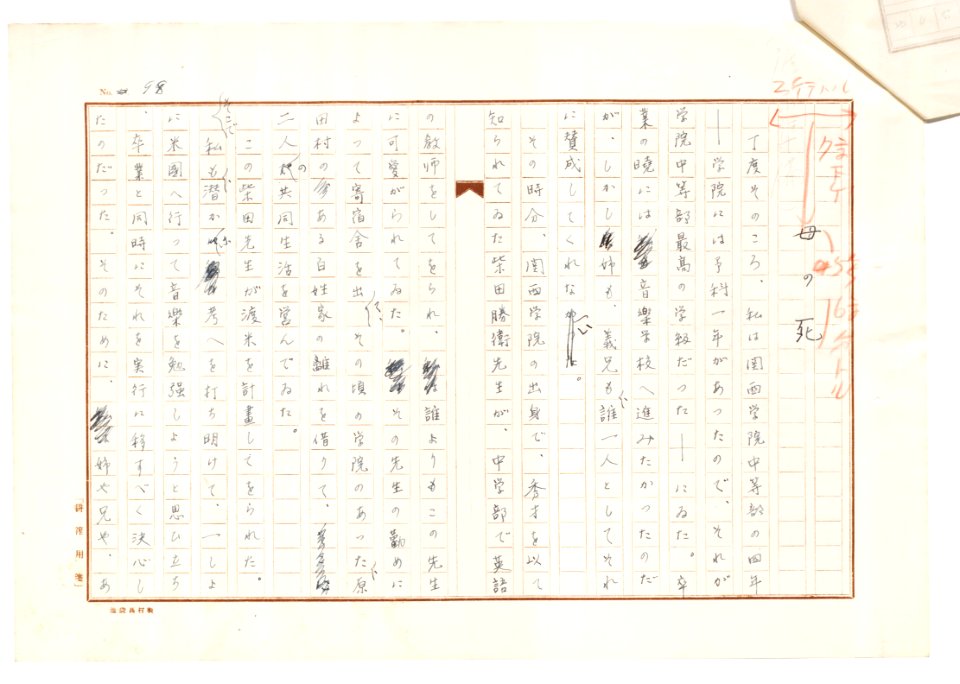 No. 98
母の死
丁度そのころ、私は関西学院中等部の四年
――学院には予科一年があったので、それが
学院中等部最高の学級だった――にゐた。卒
業の暁には音楽学校へ進みたかったのだ
が、しかし姉も、義兄も、誰一人としてそれ
に賛成してくれない。
その時分、関西学院の出身で、秀才を以て
知られてゐた柴田勝衛先生が、中学部で英語
の教師をしてをられ、誰よりもこの先生
に可愛がられてゐた。その先生の勧めに
よって寄宿舎を出、その頃の学院のあった原
田村のある百姓家の離れを借りて、
二人の共同生活を営んでゐた。
この柴田先生が渡米を計畫してをられた。
そこで、私も潜かな考へを打ち明けて、一しょ
に米國へ行って音樂を勉強しようと思ひ立ち
、卒業と同時にそれを実行に移すべく決心し
たのだった。そのために、姉や兄や、あ